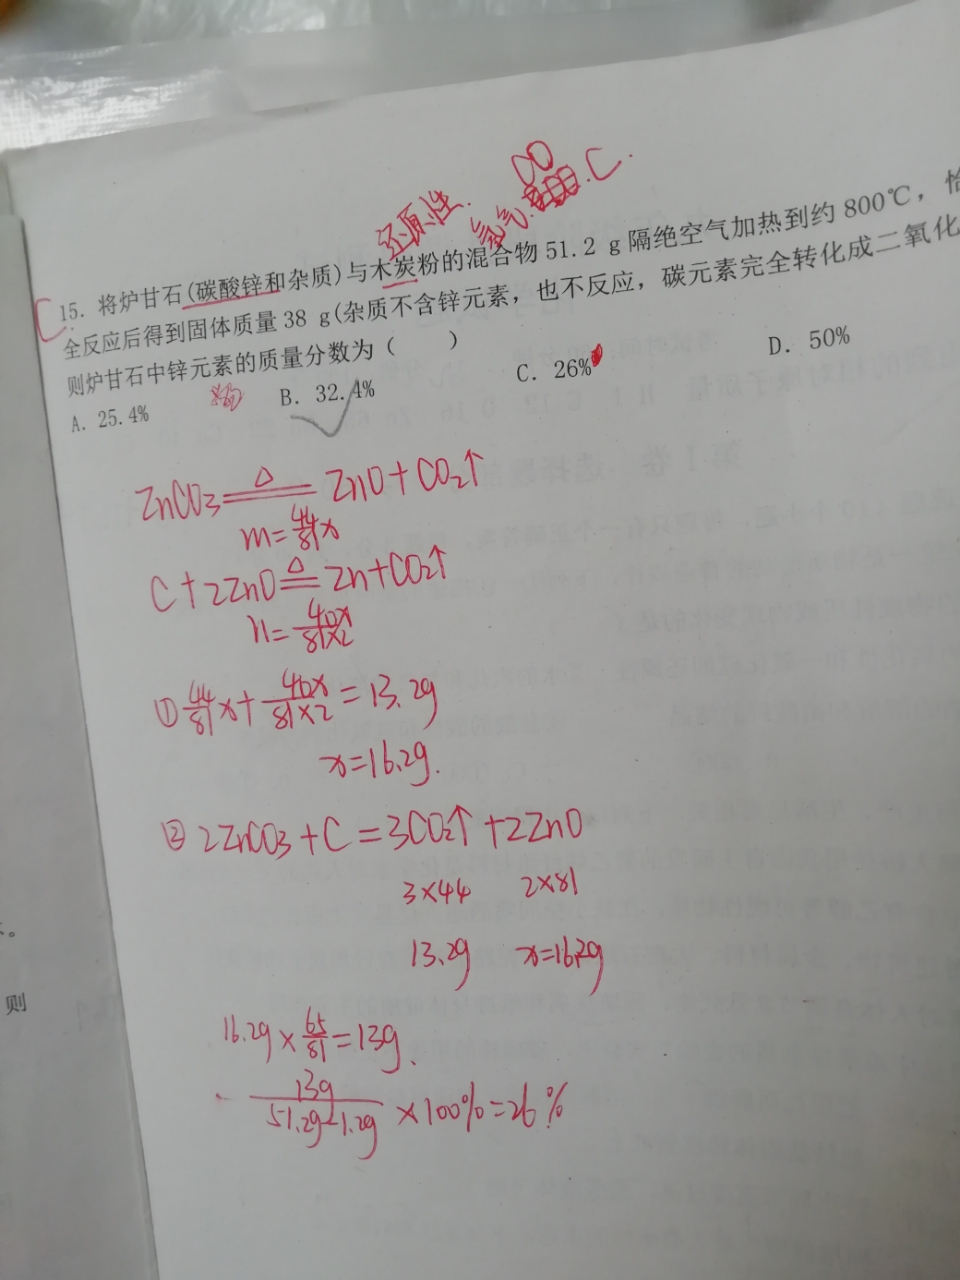 还原性.
氢气. CO .C.
C 15. 将炉甘石(碳酸锌和杂质)与木炭粉的混合物51.2 g隔绝空气加热到约800℃，恰
全反应后得到固体质量38 g(杂质不含锌元素，也不反应，碳元素完全转化成二氧化
则炉甘石中锌元素的质量分数为（ ）
A. 25.4% B. 32.4% C. 26% D. 50%
ZnCO3 △ ZnO+CO2↑
m=44/81x
C+2ZnO △ Zn+CO2↑
n=
① 44/81x+ =13.2g
x=16.2g.
② 2ZnCO3+C=3CO2↑+2ZnO
3×44 2×81
13.2g x=16.2g
16.2g×65/81=13g.
13g/51.2g-1.2g×100%=26%
。
则